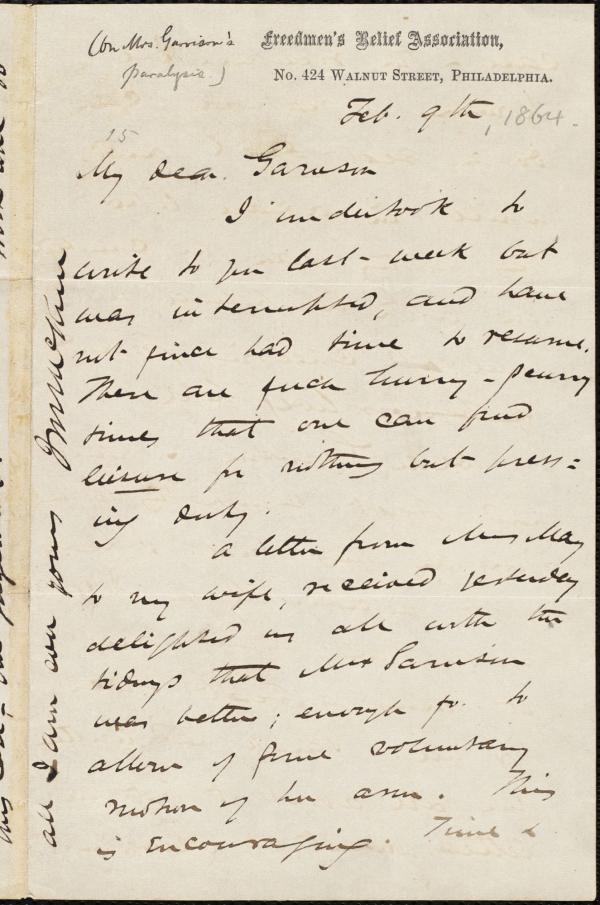 (On Mrs. Garrison's
paralysis.)
Freedmen's Relief Association,
No. 424 Walnut Street, Philadelphia.
Feb. 9th, 1864.
15
My dear Garrison
I undertook to
write to you last week but
was interrupted, and have
not since had time to resume.
These are such hurry-scurry
times that one can find
leisure for nothing but press=
ing duty.
A letter from Mrs May
to my wife, received yesterday
delighted us all with the
tidings that Mrs Garrison
was better; enough so to
allow of some voluntary
motion of her arm. This
is encouraging. Time &
all I am ever yours J M McKim